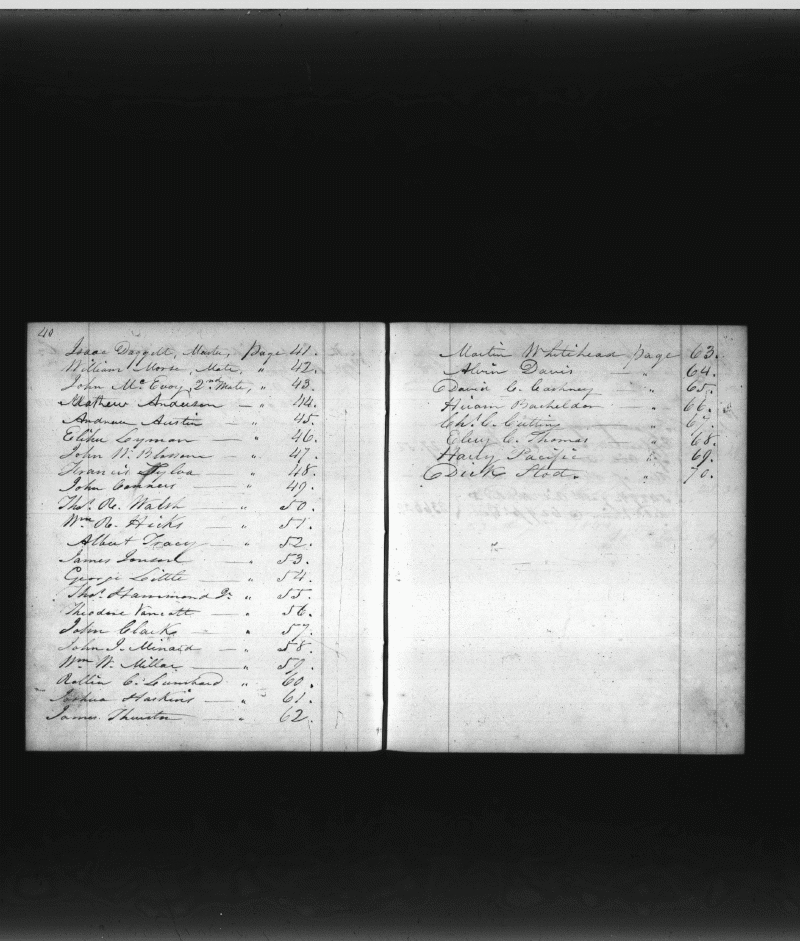 40
Isaac Daggett, Master, page 41.
William Morse, Mate, " 42.
John McEvoy, 2nd Mate, " 43.
Mathew Anderson — " 44.
Andrew Austin — " 45.
Elihu Lyman — " 46.
John W. Blossom — " 47.
Francis Sylva " 48.
John Conners " 49.
Thos. R. Walsh — " 50.
Wm. R. Hicks — " 51.
Albert Tracy — " 52.
James — " 53.
George Little — " 54.
Thos. Hammond Jr. " 55.
Theodore — " 56.
John Clark — " 57.
John J. Minard — " 58.
Wm. W. Millar — " 59.
Rollin C. Lumbard " 60.
Joshua Haskins — " 61.
James Thurston — " 62.
Martin Whitehead page 63.
Alvin Davis — " 64.
David C. — " 65.
Hiram Bacheldor — " 66.
Chs. C. Cutting — " 67.
C. Thomas — " 68.
Harly Pacific — " 69.
Dick Stod. " 70.